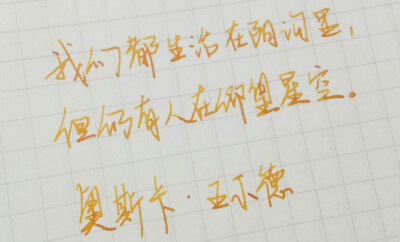 我们都生活在阴沟里，
但仍有人在仰望星空。
奥斯卡·王尔德